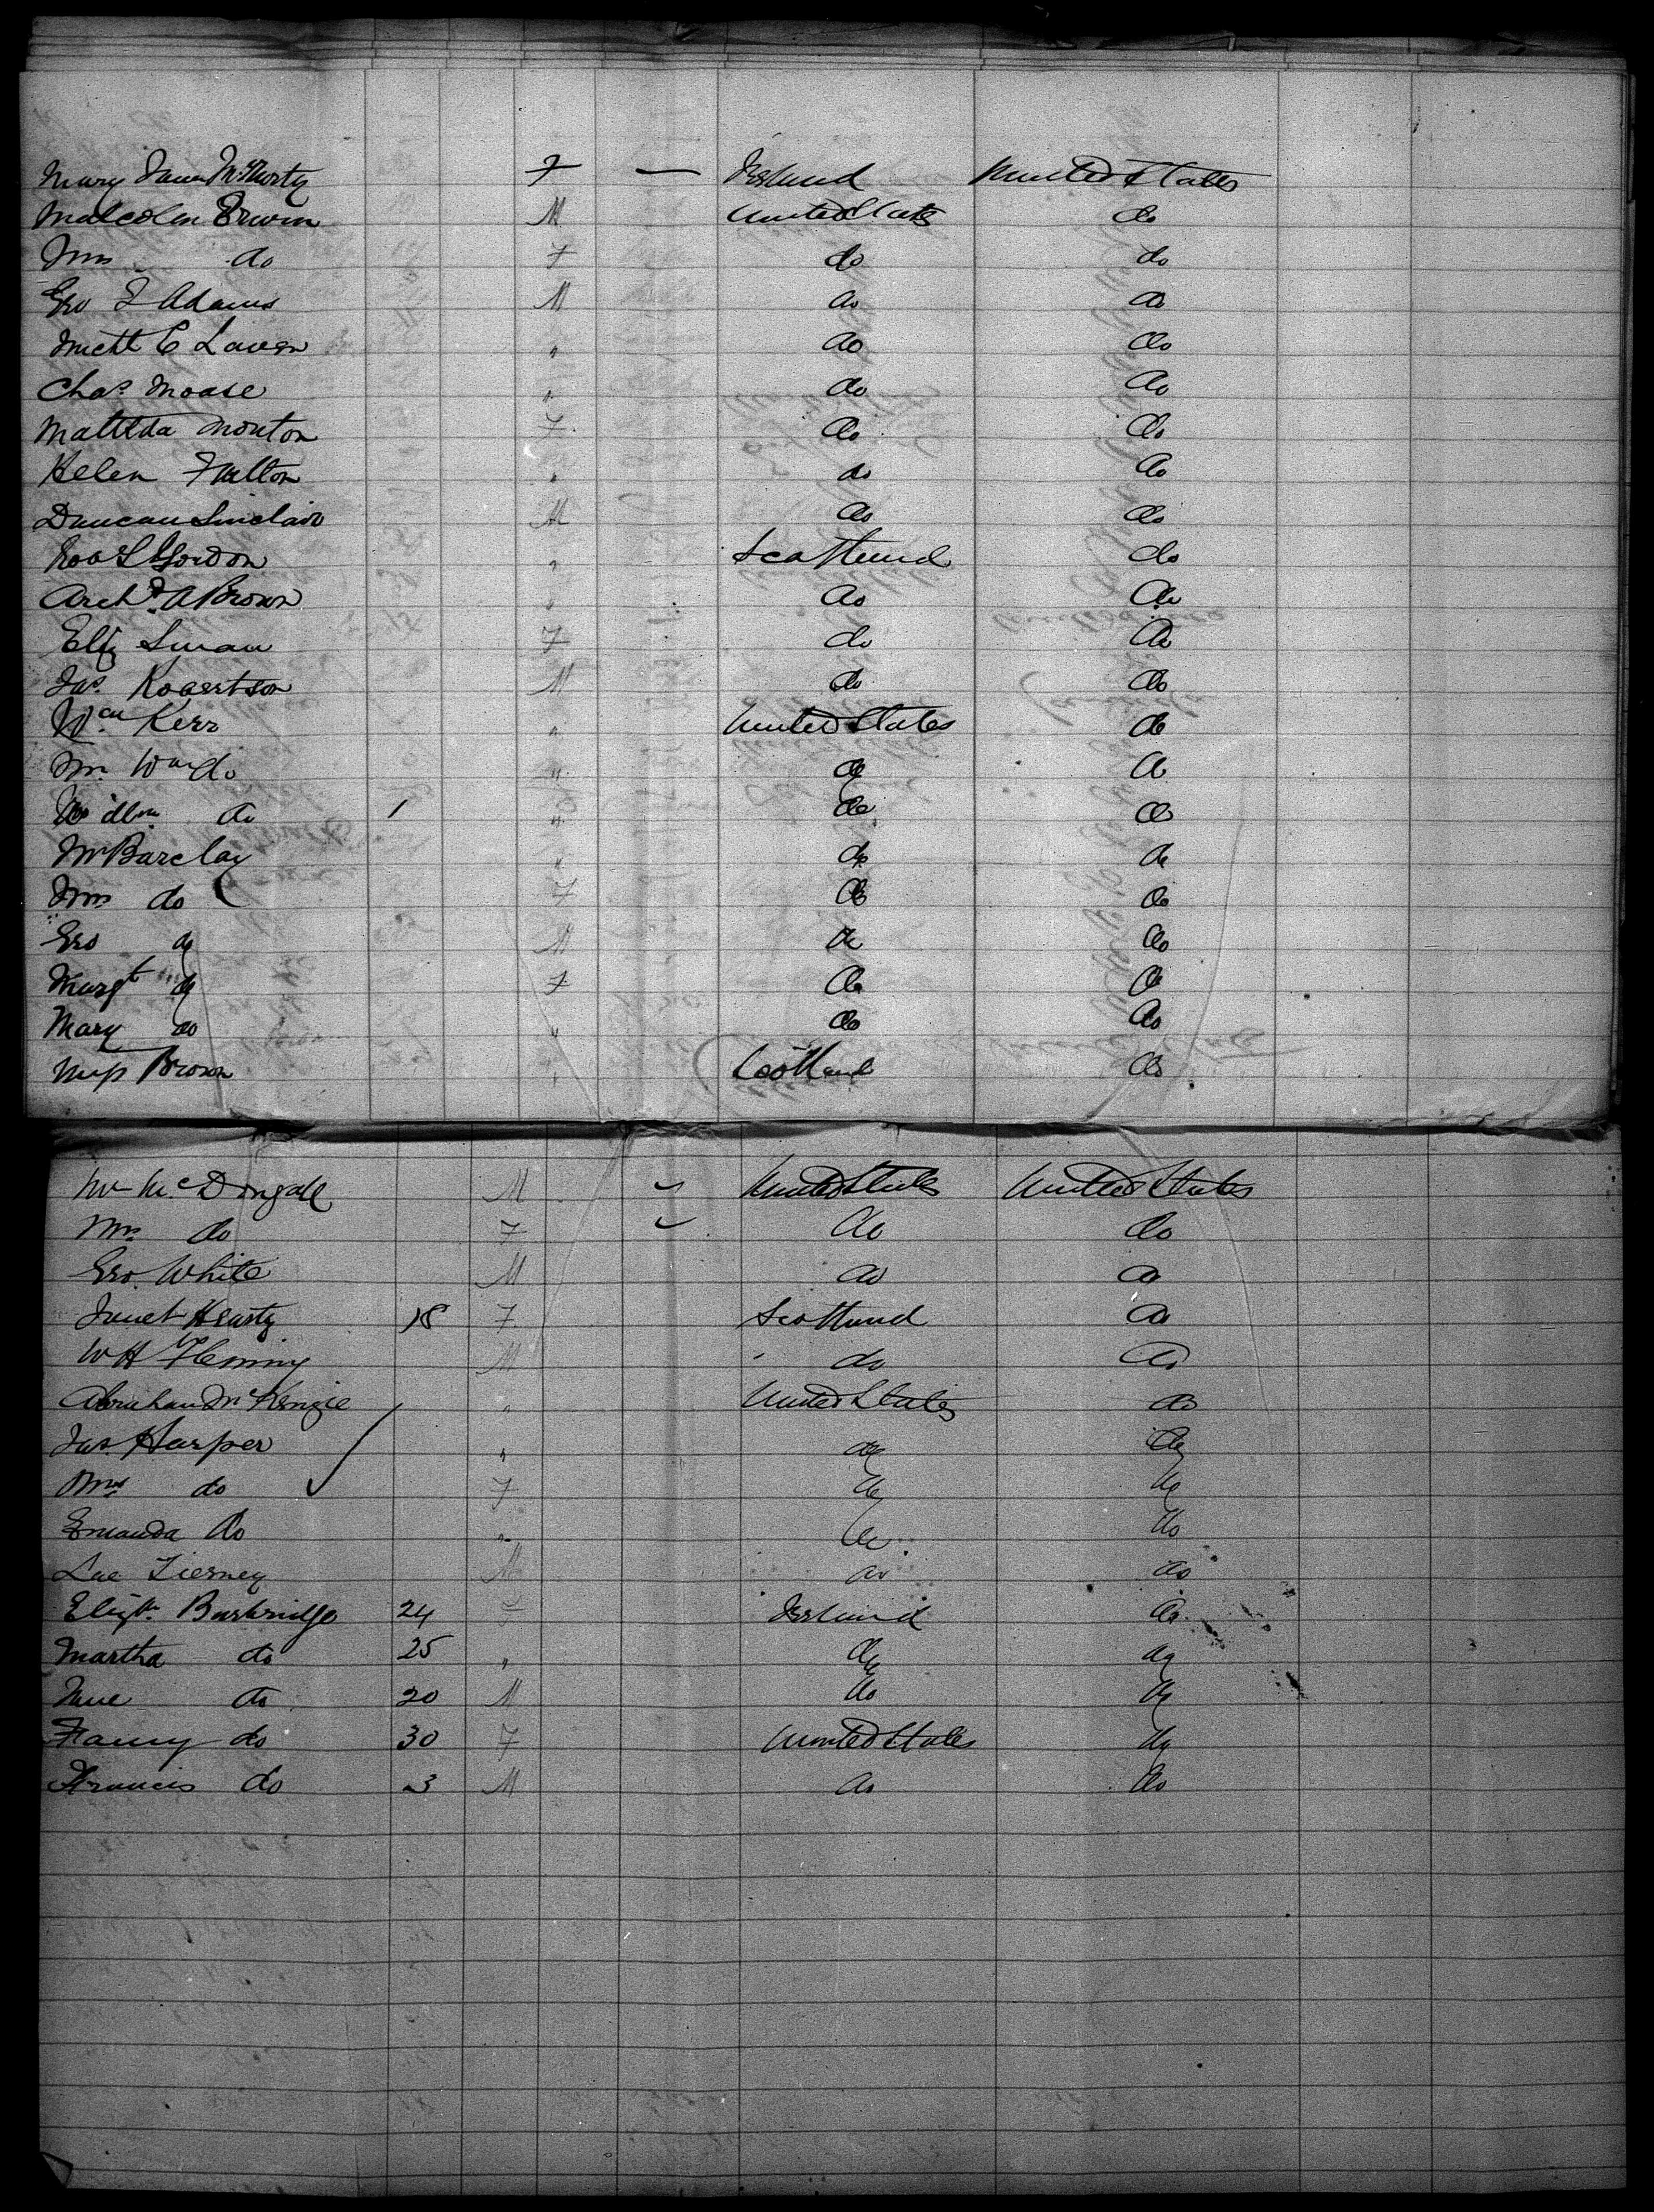 Mary Jane McMurty F — Ireland United States
Malcolm Erwin M United States do
Mrs do F do do
Geo F Adams M do do
C Lauen " do do
Chas Moase " do do
Matilda Monton F do do
Helen Fulton " do do
Duncan Sinclair M do do
Robt Gordon " Scotland do
Archd. A Brown " do do
Eliz Swan F do do
Jas. Robertson M do do
Wm Kerr " United States do
Mr. Wm do " do do
do 1 " do do
Mr Barclay " do do
Mrs do F do do
Geo do M do do
Margt do F do do
Mary do " do do
Miss Brown " Scotland do
Mr McDongall M United States United States
Mrs do F do do
Geo. White M do do
Janet Hearty 18 F Scotland do
W H Fleming M do do
Abraham McKenzie " United States do
Jas. Harper " do do
Mrs do F do do
Emanda do " do do
Tierney M do do
Elizth. Busbridge 24 Ireland do
Martha do 25 " do do
do 20 M do do
Fanny do 30 F United States do
Francis do 3 M do do